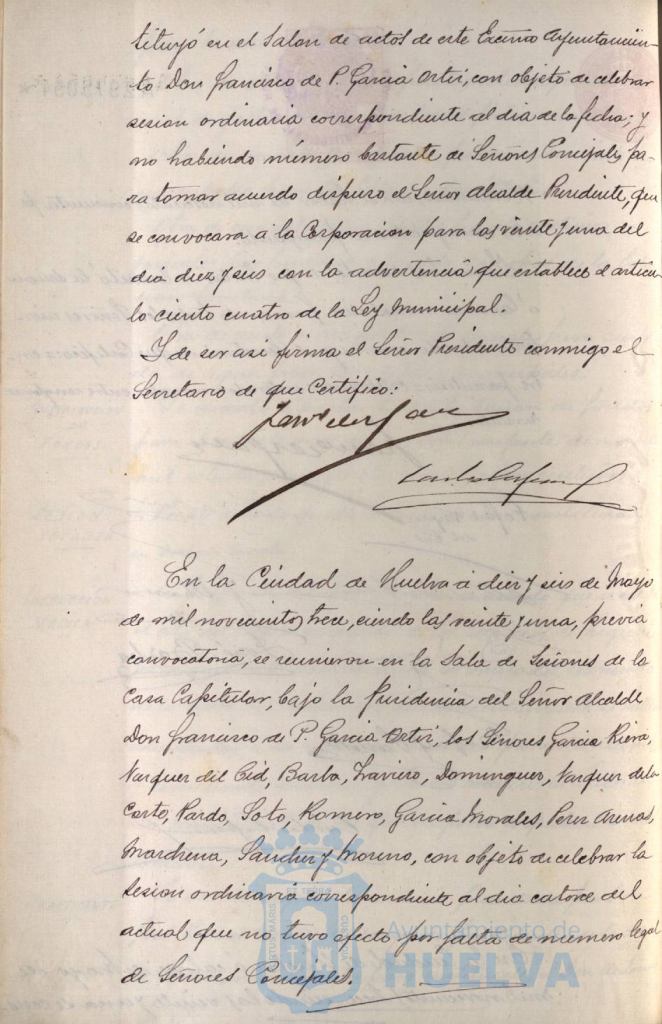 tituyó en el Salon de actos de este Excmo Ayuntamien-
to Don Francisco de P. Garcia Ortiz, con objeto de celebrar
sesion ordinaria correspondiente al dia de la fecha; y
no habiendo número bastante de Señores Concejales pa-
ra tomar acuerdo dispuso el Señor Alcalde Presidente, que
se convocara á la Corporacion para las veinte y una del
dia diez y seis con la advertencia que establece el articu-
lo ciento cuatro de la Ley Municipal.
Y de ser asi firma el Señor Presidente conmigo el
Secretario de que Certifico:
En la Ciudad de Huelva á diez y seis de Mayo
de mil novecientos trece, siendo las veinte y una, previa
convocatoria, se reunieron en la Sala de Sesiones de la
Casa Capitular, bajo la Presidencia del Señor Alcalde
Don Francisco de P. Garcia Ortiz, los Señores Garcia Riera,
Vazquez del Cid, Barba, Traviero, Dominguez, Vazquez de la
Corte, Pardo, Soto, Romero, Garcia Morales, Perez Arenas,
Marchena, Sanchez y Moreno, con objeto de celebrar la
sesion ordinaria correspondiente al dia catorce del
actual que no tuvo efecto por falta de número legal
de Señores Concejales.
Ayuntamiento de
HUELVA